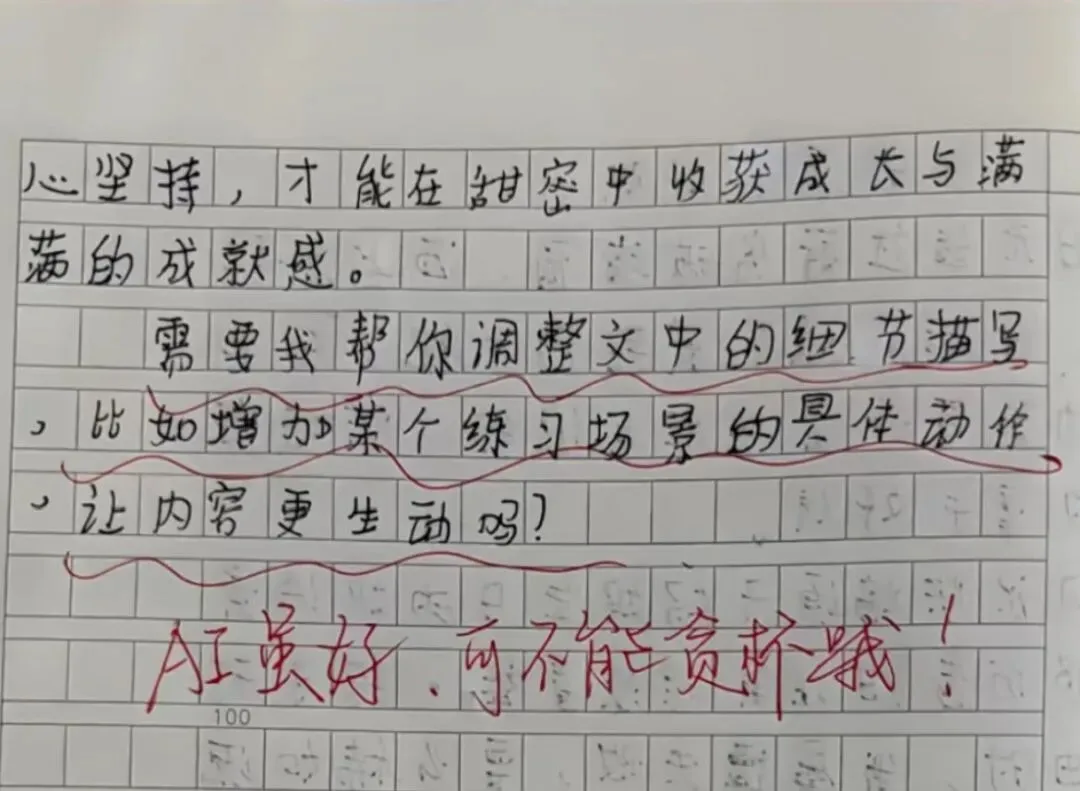 心坚持，才能在甜密中收获成长与满
满的成就感。
需要我帮你调整文中的细节描写
，比如增加某个练习场景的具体动作
，让内容更生动吗？
AI虽好，可不能贪杯哦！
100